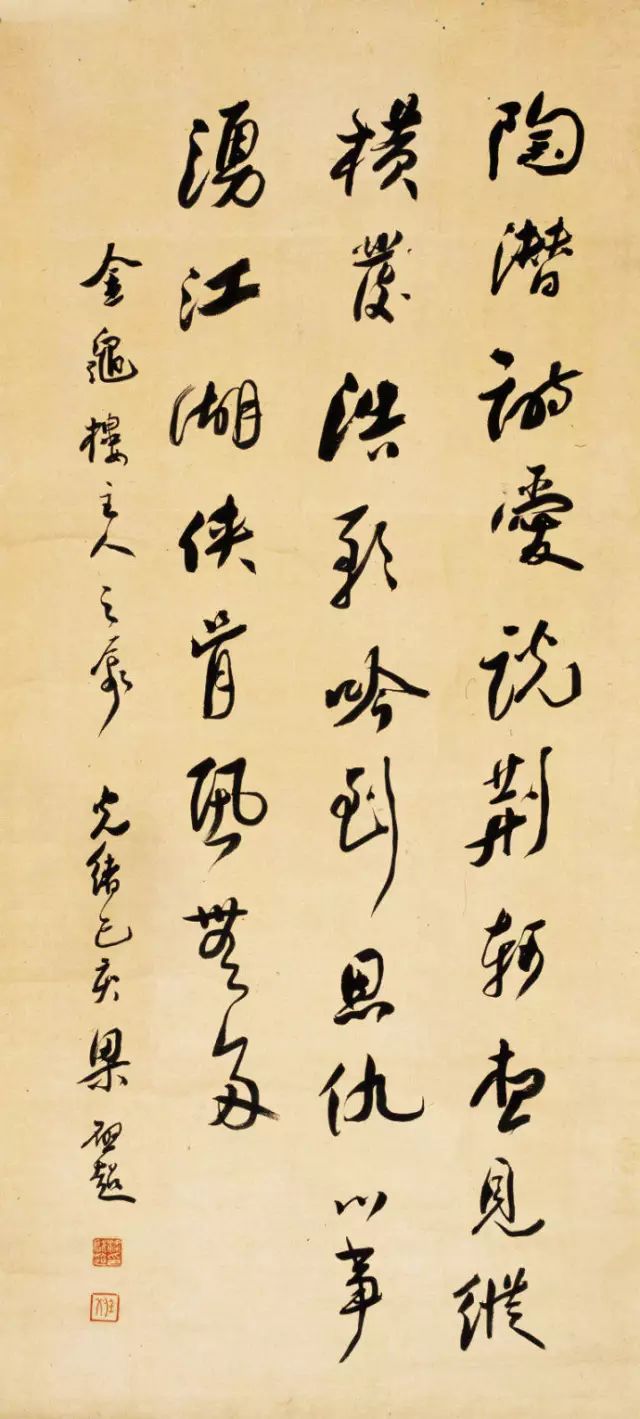 陶潛詩愛說荊軻想見縱
橫發浩歌吟到恩仇心事
湧江湖俠骨恐無多
金龜樓主人之 光緒己亥 梁啟超